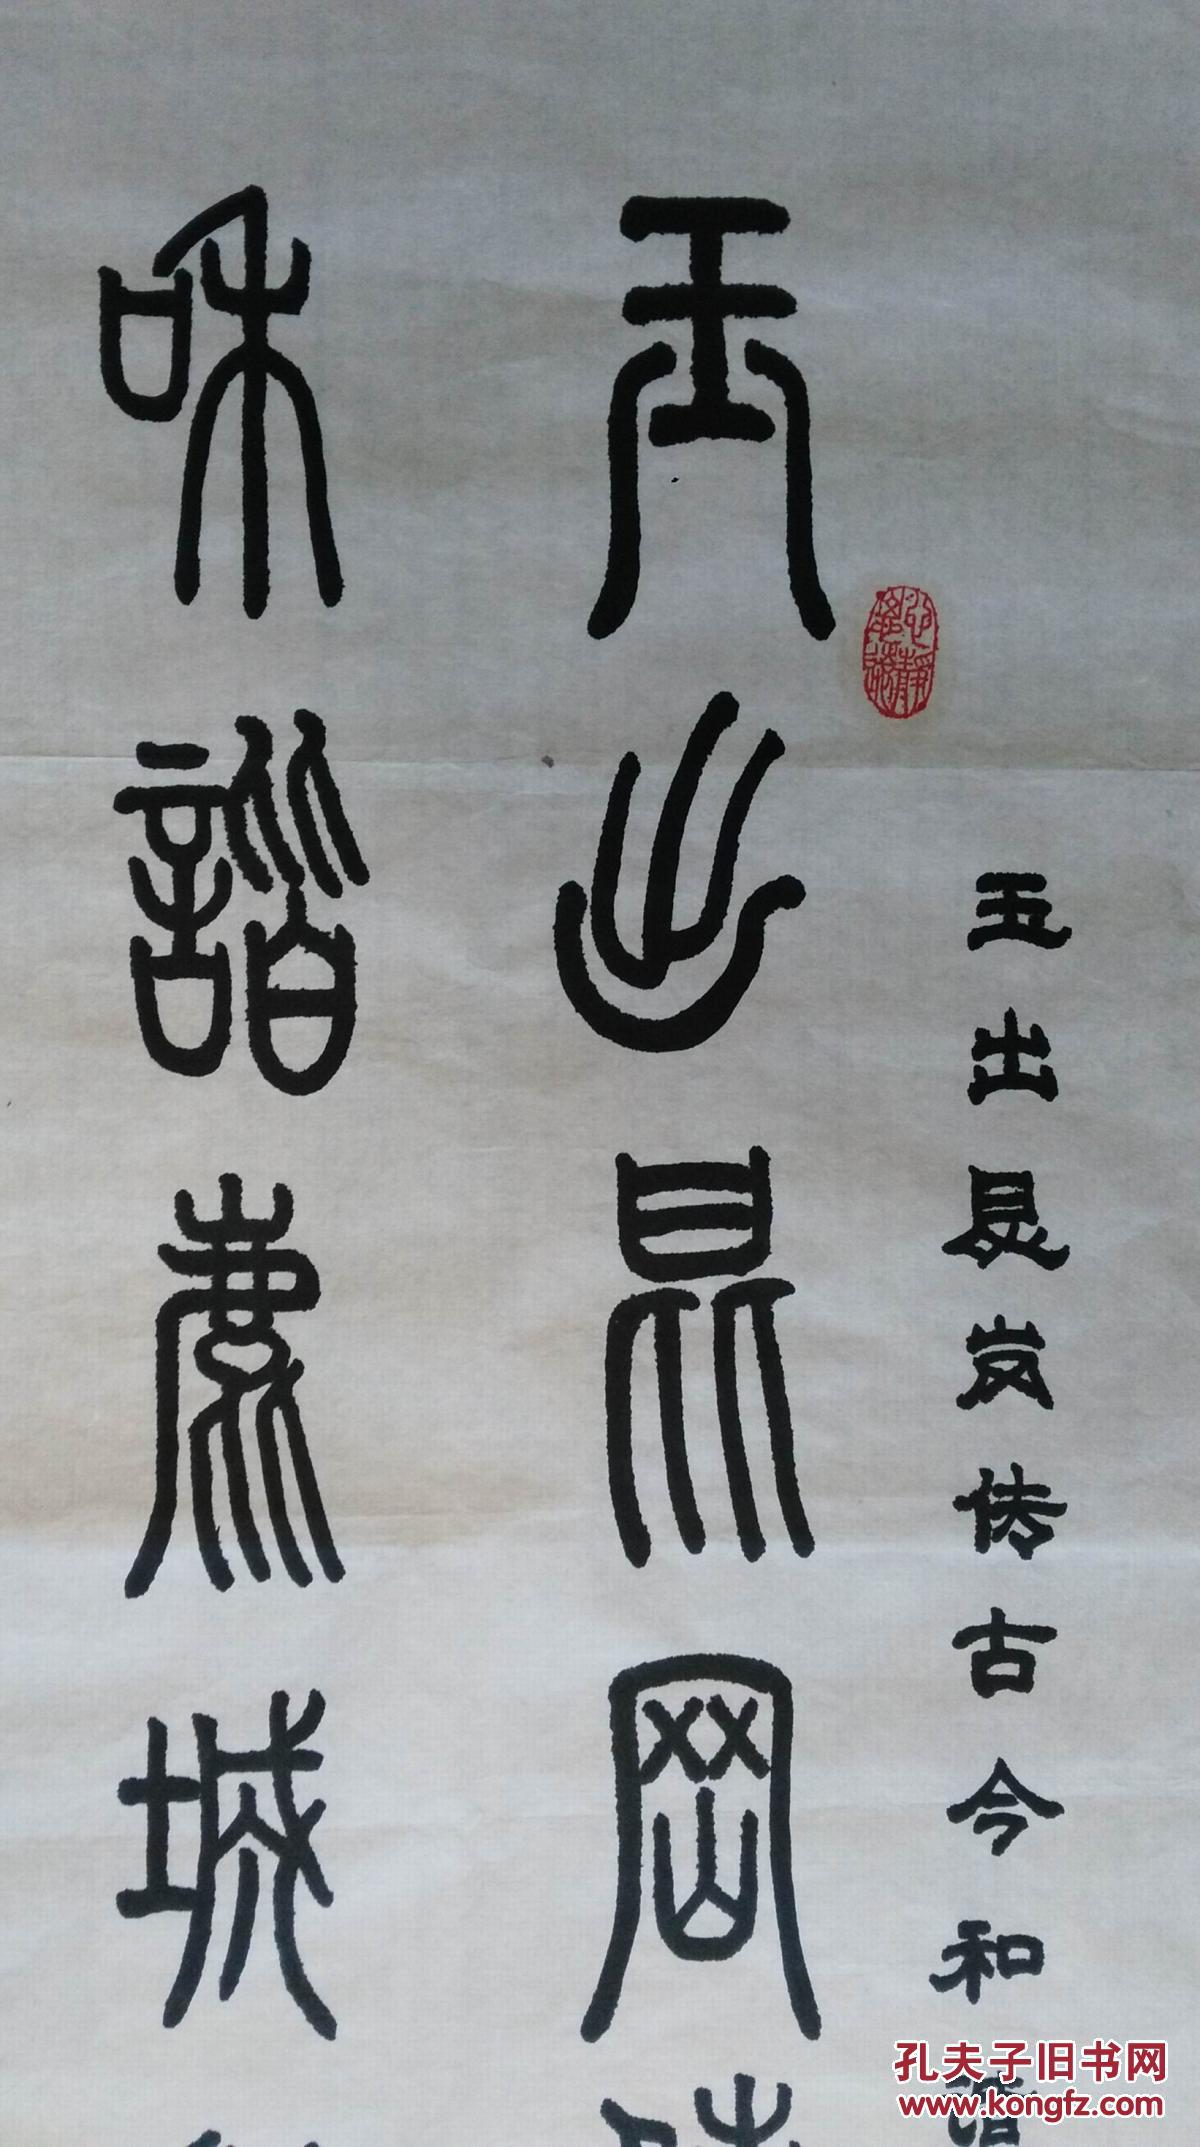 玉出昆岗传古今和
玉出昆岡
和諧鹿城
孔夫子旧书网
www.kongfz.com